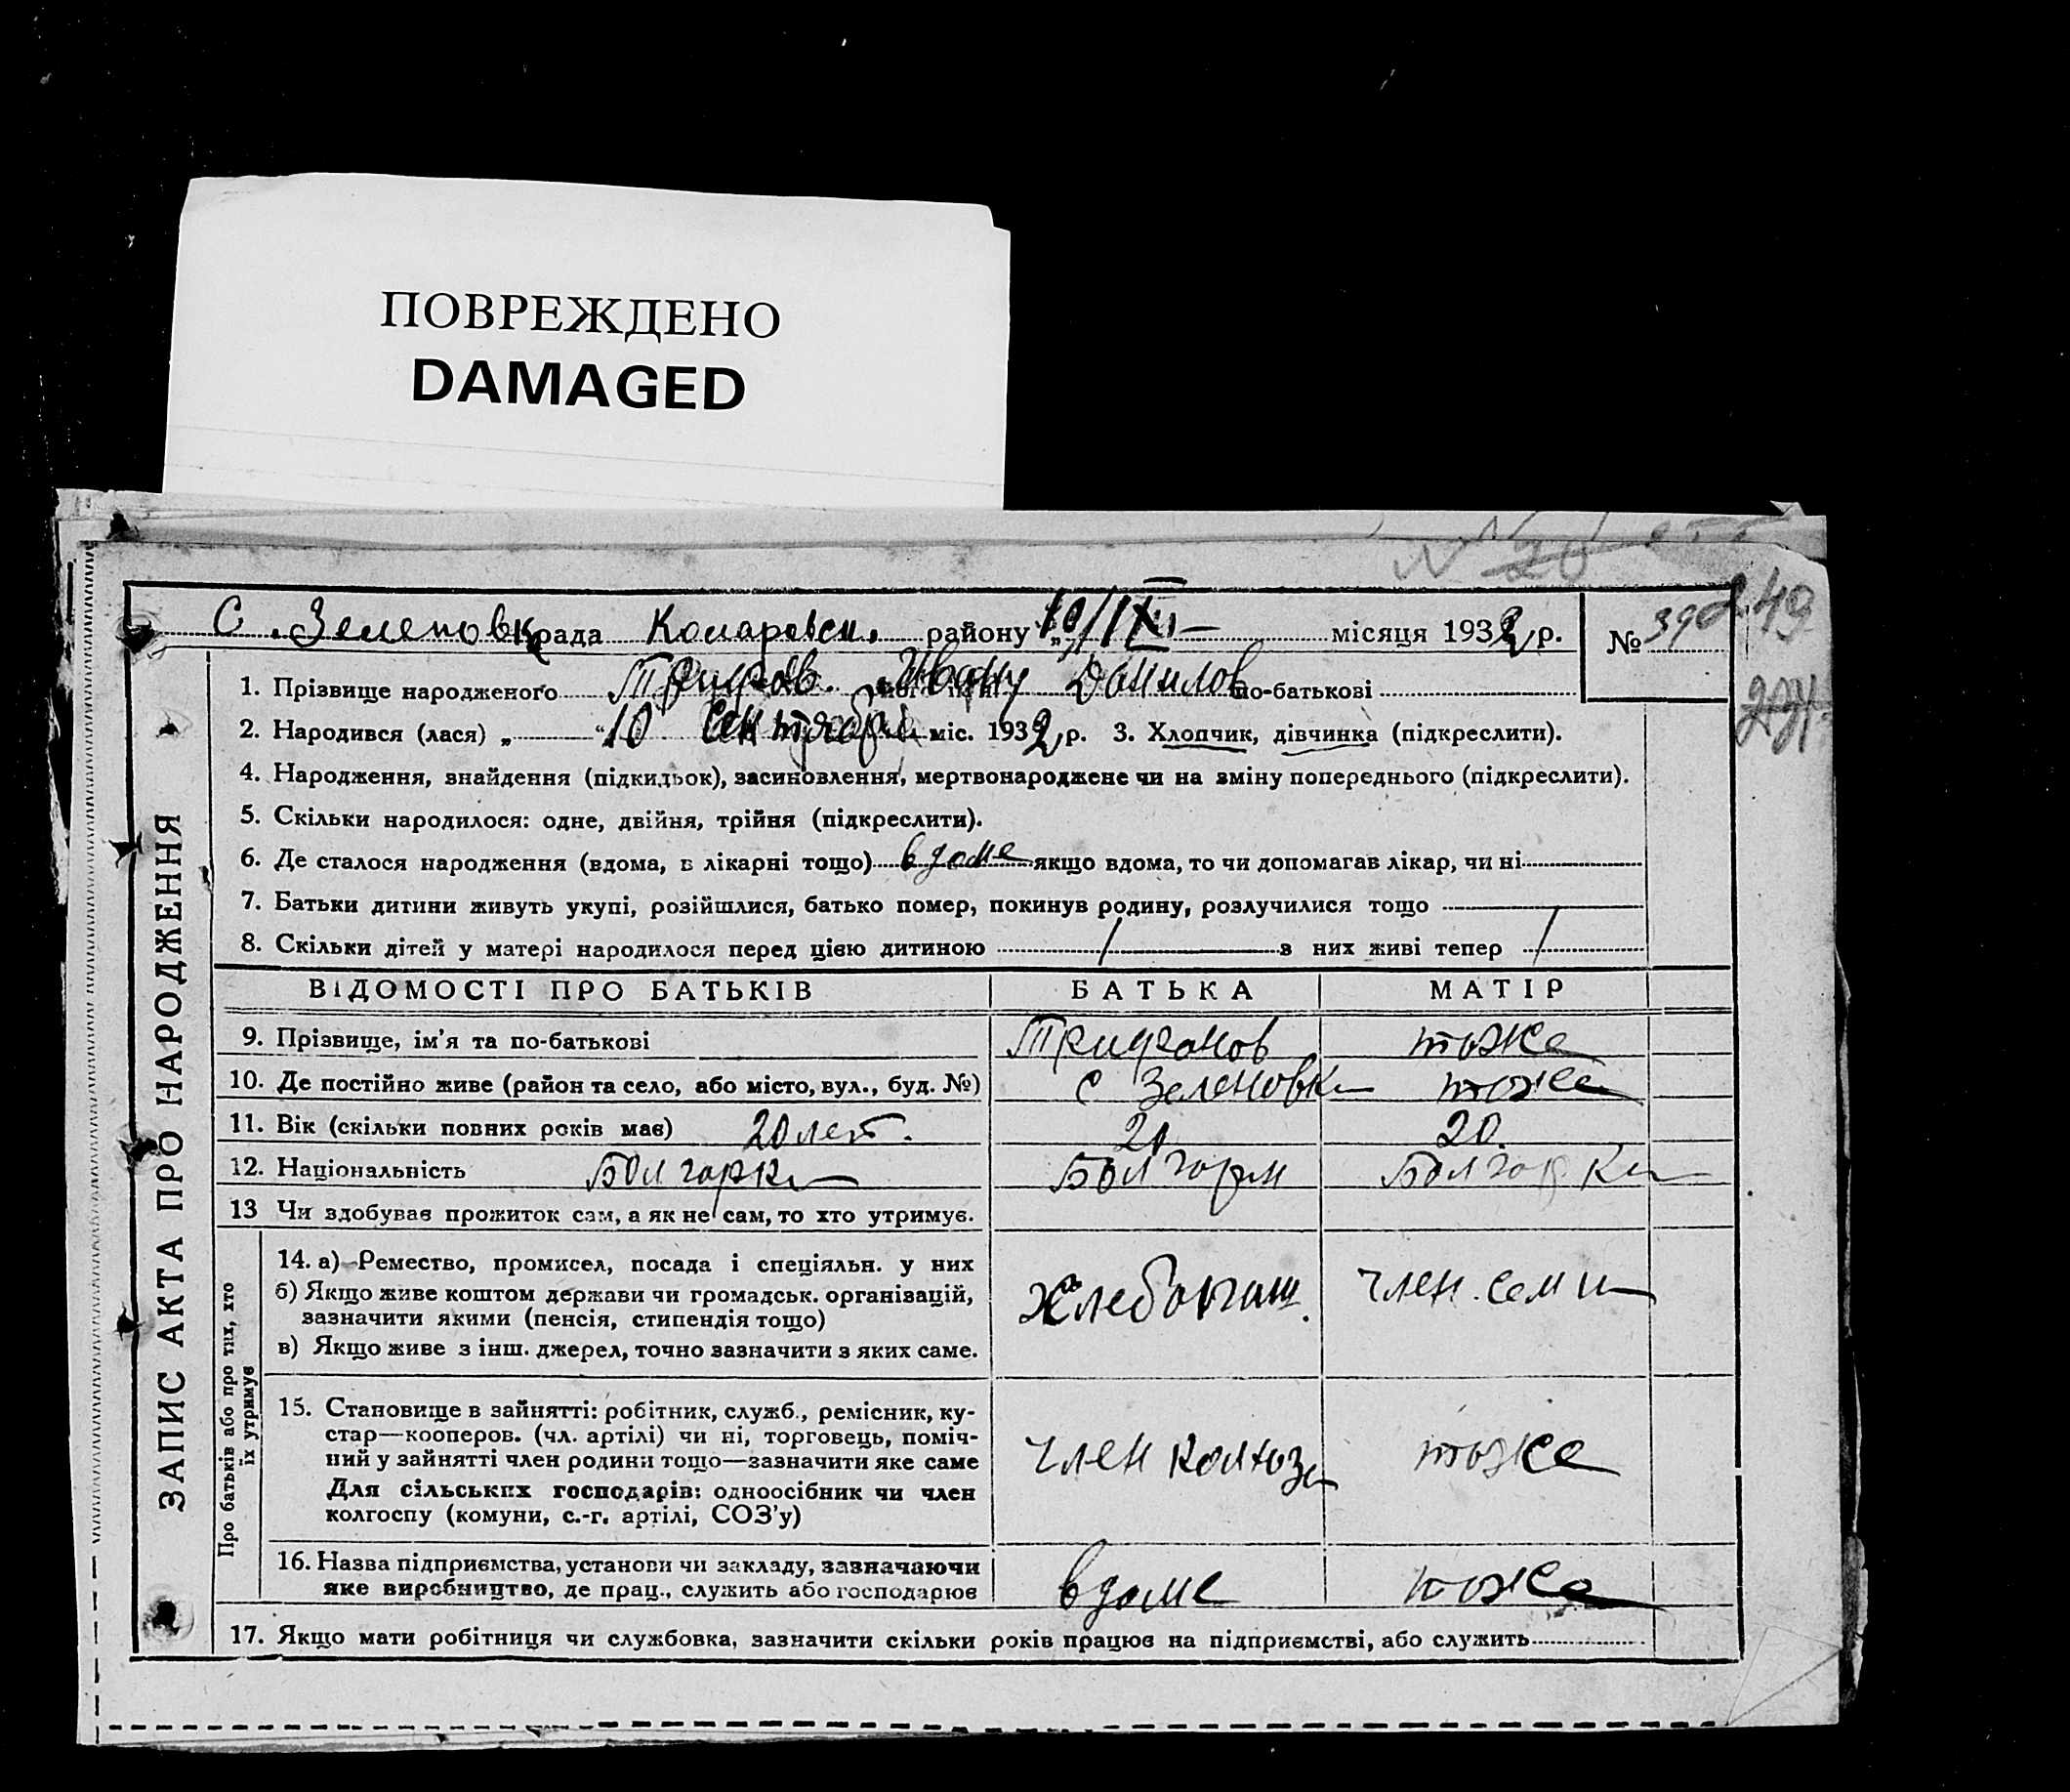 ПОВРЕЖДЕНО
DAMAGED
С. Зеленовка рада Комаровск. району місяця 1932 р. №
1. Прізвище народженого Ивану Данилов по-батькові
2. Народився (лася) „ “ 10 сентября міс. 1932 р. 3. Хлопчик, дівчинка (підкреслити).
4. Народження, знайдення (підкидьок), засиновлення, мертвонароджене чи на зміну попереднього (підкреслити).
5. Скільки народилося: одне, двійня, трійня (підкреслити).
6. Де сталося народження (вдома, в лікарні тощо) вдоме якщо вдома, то чи допомагав лікар, чи ні
7. Батьки дитини живуть укупі, розійшлися, батько помер, покинув родину, розлучилися тощо
8. Скільки дітей у матері народилося перед цією дитиною / з них живі тепер /
ВІДОМОСТІ ПРО БАТЬКІВ БАТЬКА МАТІР
9. Прізвище, ім’я та по-батькові Трифонов тоже
10. Де постійно живе (район та село, або місто, вул., буд. №) с Зеленовка тоже
11. Вік (скільки повних років має) 20 лет. 20 20.
12. Національність Болгарка Болгари Болгарка
13 Чи здобував прожиток сам, а як не сам, то хто утримує.
14. а) Ремество, промисел, посада і спеціяльн. у них
б) Якщо живе коштом держави чи громадськ. організацій,
зазначити якими (пенсія, стипендія тощо)
в) Якщо живе з інш. джерел, точно зазначити з яких саме.
Хлебопаш. член. семи
15. Становище в зайнятті: робітник, служб., ремісник, ку-
стар—кооперов. (чл. артілі) чи ні, торговець, поміч-
ний у зайнятті член родини тощо—зазначити яке саме
Для сільських господарів: одноосібник чи член
колгоспу (комуни, с.-г. артілі, СОЗ’у)
член колхоза тоже
16. Назва підприємства, установи чи закладу, зазначаючи
яке виробництво, де прац., служить або господарює
вдоме тоже
17. Якщо мати робітниця чи службовка, зазначити скільки років працює на підприємстві, або служить
ЗАПИС АКТА ПРО НАРОДЖЕННЯ
Про батьків або про тих, хто
їх утримує